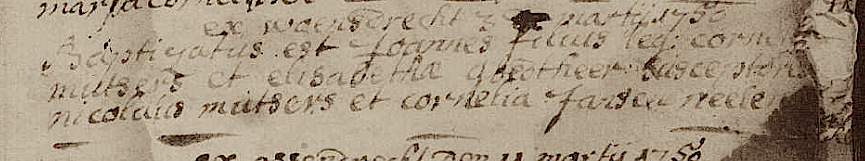 maria cornel
ex woensdrecht 3 martij 1750
Baptizatus est Joannes filius leg: corneli
mutsers et elisabetha susceptores
nicolaus mutsers et cornelia Jansen neelen
ex ossendrecht den 11 martij 1750